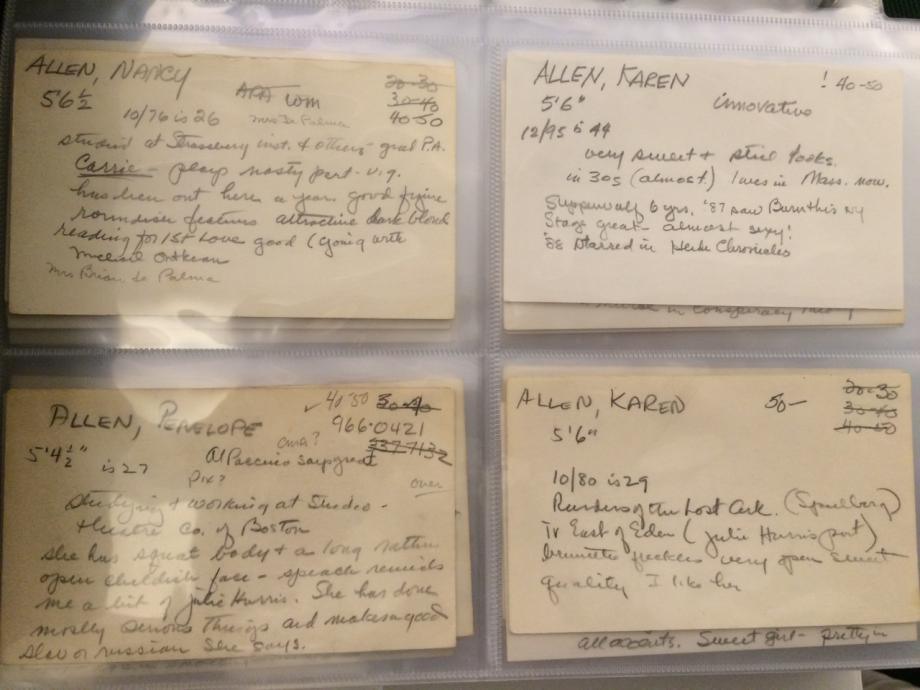 ALLEN, NANCY
5'6½
APA WM
20-30
30-40
40-50
10/76 is 26
Mrs De Palma
studied at Strassberg inst. & others - good P.A.
Carrie - plays nasty part - v.g.
has been out here a year. good figure
roundish features attractive dark blond
reading for 1st Love good (going with
Michael Ontkean
Mrs Brian de Palma
ALLEN, KAREN
! 40-50
5'6"
innovative
12/95 is 44
very sweet & still looks
in 30s (almost) lives in Mass. now.
6 yrs. '87 saw Burn this NY
Stage great - almost sexy!
'88 starred in Heide Chronicles
in conspiracy theory
ALLEN, PENELOPE
✓ 40-50 30-40
966-0421
ama?
5'4½" is 27
Al Paccino says great
337-7132
pix?
over
Studying & working at Studio -
theatre Co. of Boston
she has squat body & a long rather
open childish face - speach reminds
me a bit of Julie Harris. She has done
mostly serious things and makes a good
slav or russian she says.
ALLEN, KAREN
50-
20-30
30-40
40-50
5'6"
10/80 is 29
Raiders of the Lost Ark. (Spielberg)
TV East of Eden (Julie Harris part)
brunette freckles very open sweet
quality I like her
all accents. Sweet girl - pretty in